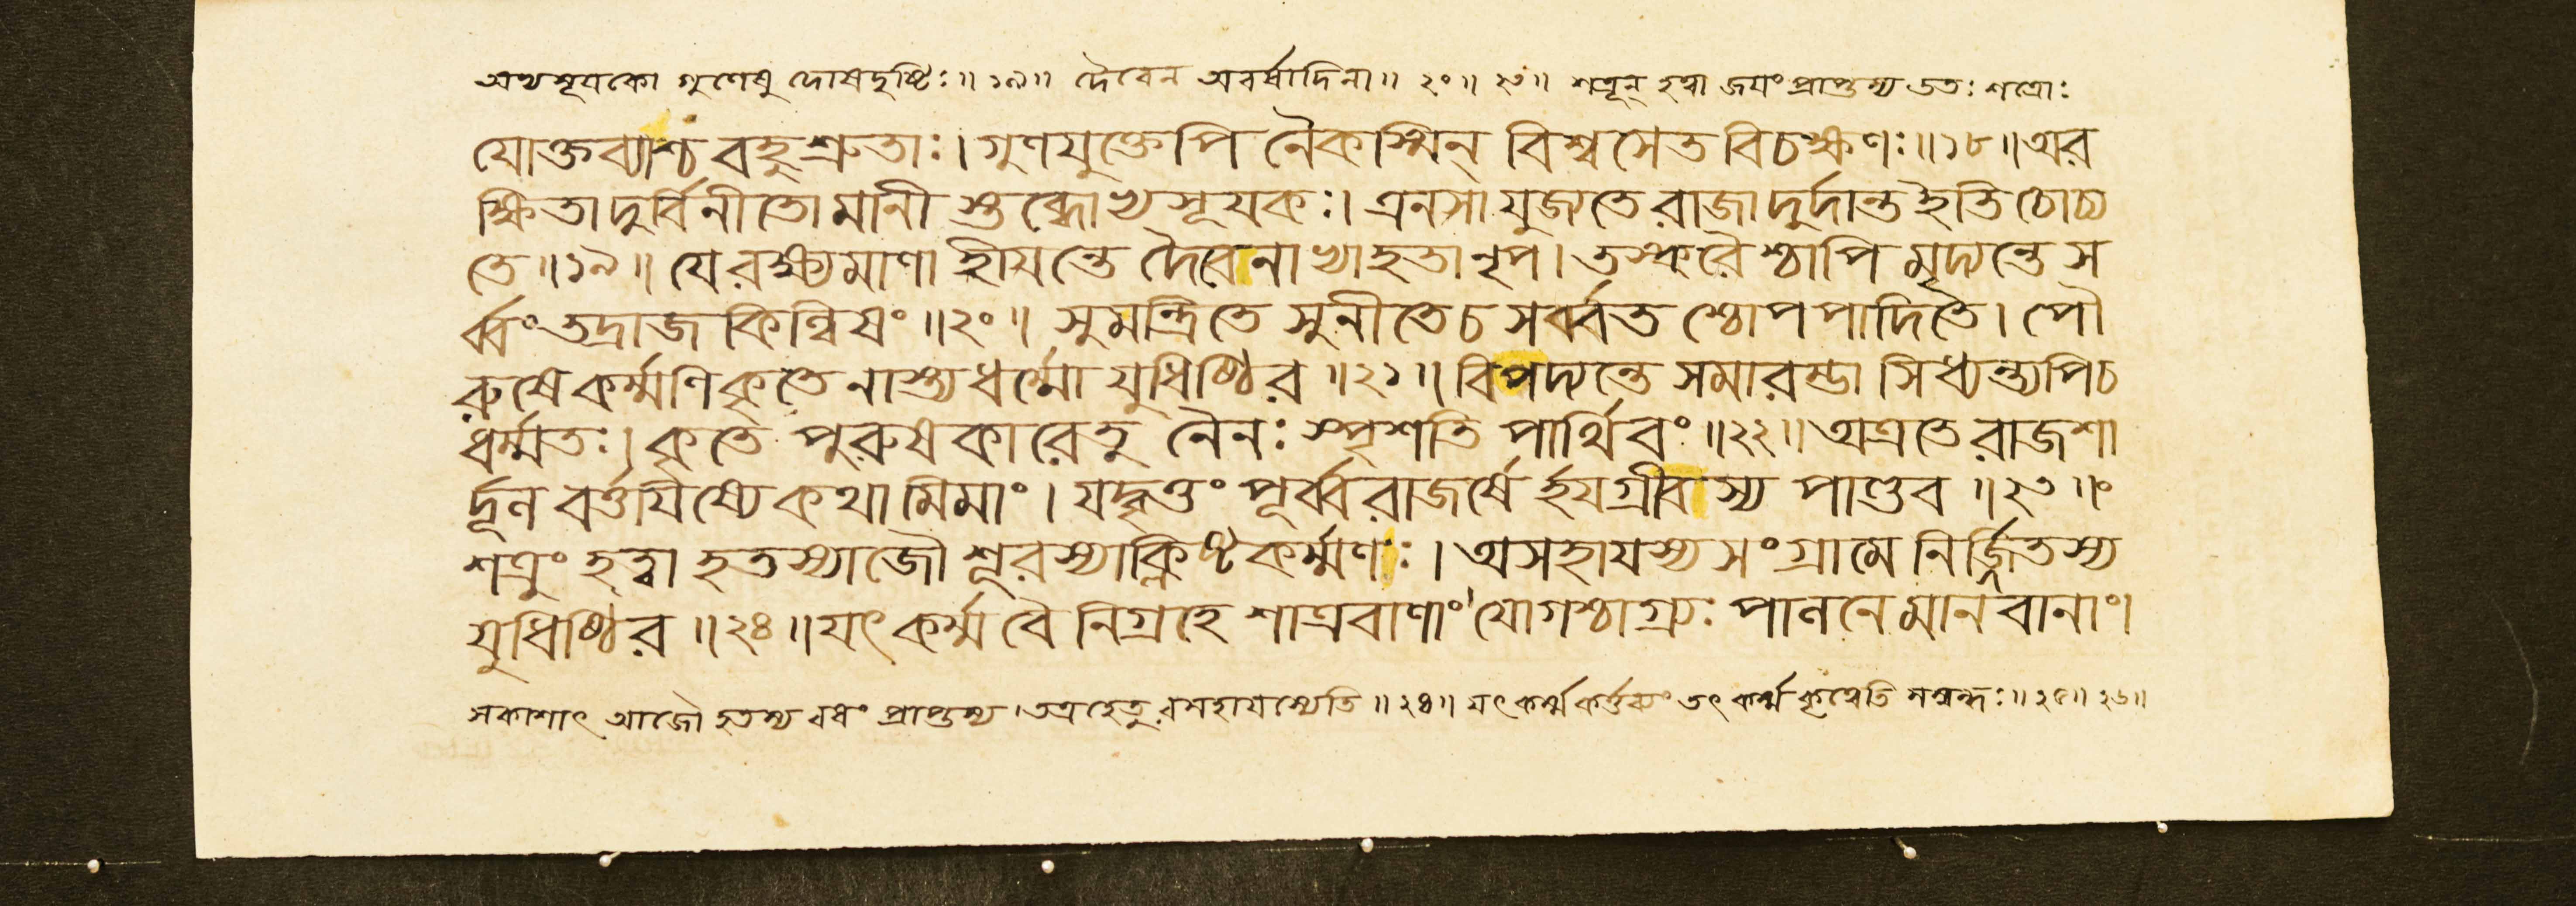 অথসূযকো গুণেষু দোষদৃষ্টিঃ ॥ ১৯ ॥ দৈবেন অবর্ষাদিনা ॥ ২০ ॥ ২১ ॥ শত্রূন্ হত্বা জযং প্রাপ্তস্য ততঃ শত্রোঃ
যোক্তব্যাশ্চ বহুশ্রুতাঃ। গুণযুক্তেপি নৈকস্মিন্ বিশ্বসেত বিচক্ষণঃ ॥ ১৮ ॥ অর
ক্ষিতা দুর্বিনীতো মানী স্তব্ধোথসূযকঃ। এনসা যুজ্যতে রাজা দুর্দান্ত ইতি চোচ্য
তে ॥ ১৯ ॥ যে রক্ষ্যমাণা হীযন্তে দৈবেনাখ্যাহতা নৃপ। তস্করৈশ্চাপি মৃদ্যন্তে স
র্ব্বং তদ্রাজকিল্বিষং ॥ ২০ ॥ সুমন্ত্রিতে সুনীতে চ সর্ব্বতশ্চোপপাদিতৈ। পৌ
রুষে কর্ম্মণি কৃতে নাস্ত্যধর্ম্মো যুধিষ্ঠির ॥ ২১ ॥ বিপদ্যন্তে সমারম্ভা সিধ্যন্ত্যপি চ
ধর্ম্মতঃ। কৃতে পুরুষকারেতু নৈনঃ স্পৃশতি পার্থিবং ॥ ২২ ॥ অত্র তে রাজশা
র্দূল বর্ত্তযিষ্যে কথামিমাং। যদ্বৃত্তং পূর্ব্বরাজর্ষের্হযগ্রীবস্য পাণ্ডব ॥ ২৩ ॥
শত্রুং হত্বা হতস্যাজৌ শূরস্যাক্লিষ্টকর্ম্মণঃ। অসহাযস্য সংগ্রামে নির্জ্জিতস্য
যুধিষ্ঠির ॥ ২৪ ॥ যৎ কর্ম্ম বৈ নিগ্রহে শাত্রবাণাং যোগশ্চাগ্র্যঃ পালনে মানবানাং।
সকাশাৎ আজৌ হতস্য বধং প্রাপ্তস্য। তত্র হেতু রসহাযস্যেতি ॥ ২৪ ॥ যৎ কর্ম্ম কর্ত্তব্যং তৎ কর্ম্ম কৃত্বেতি সম্বন্ধঃ ॥ ২৫ ॥ ২৬ ॥